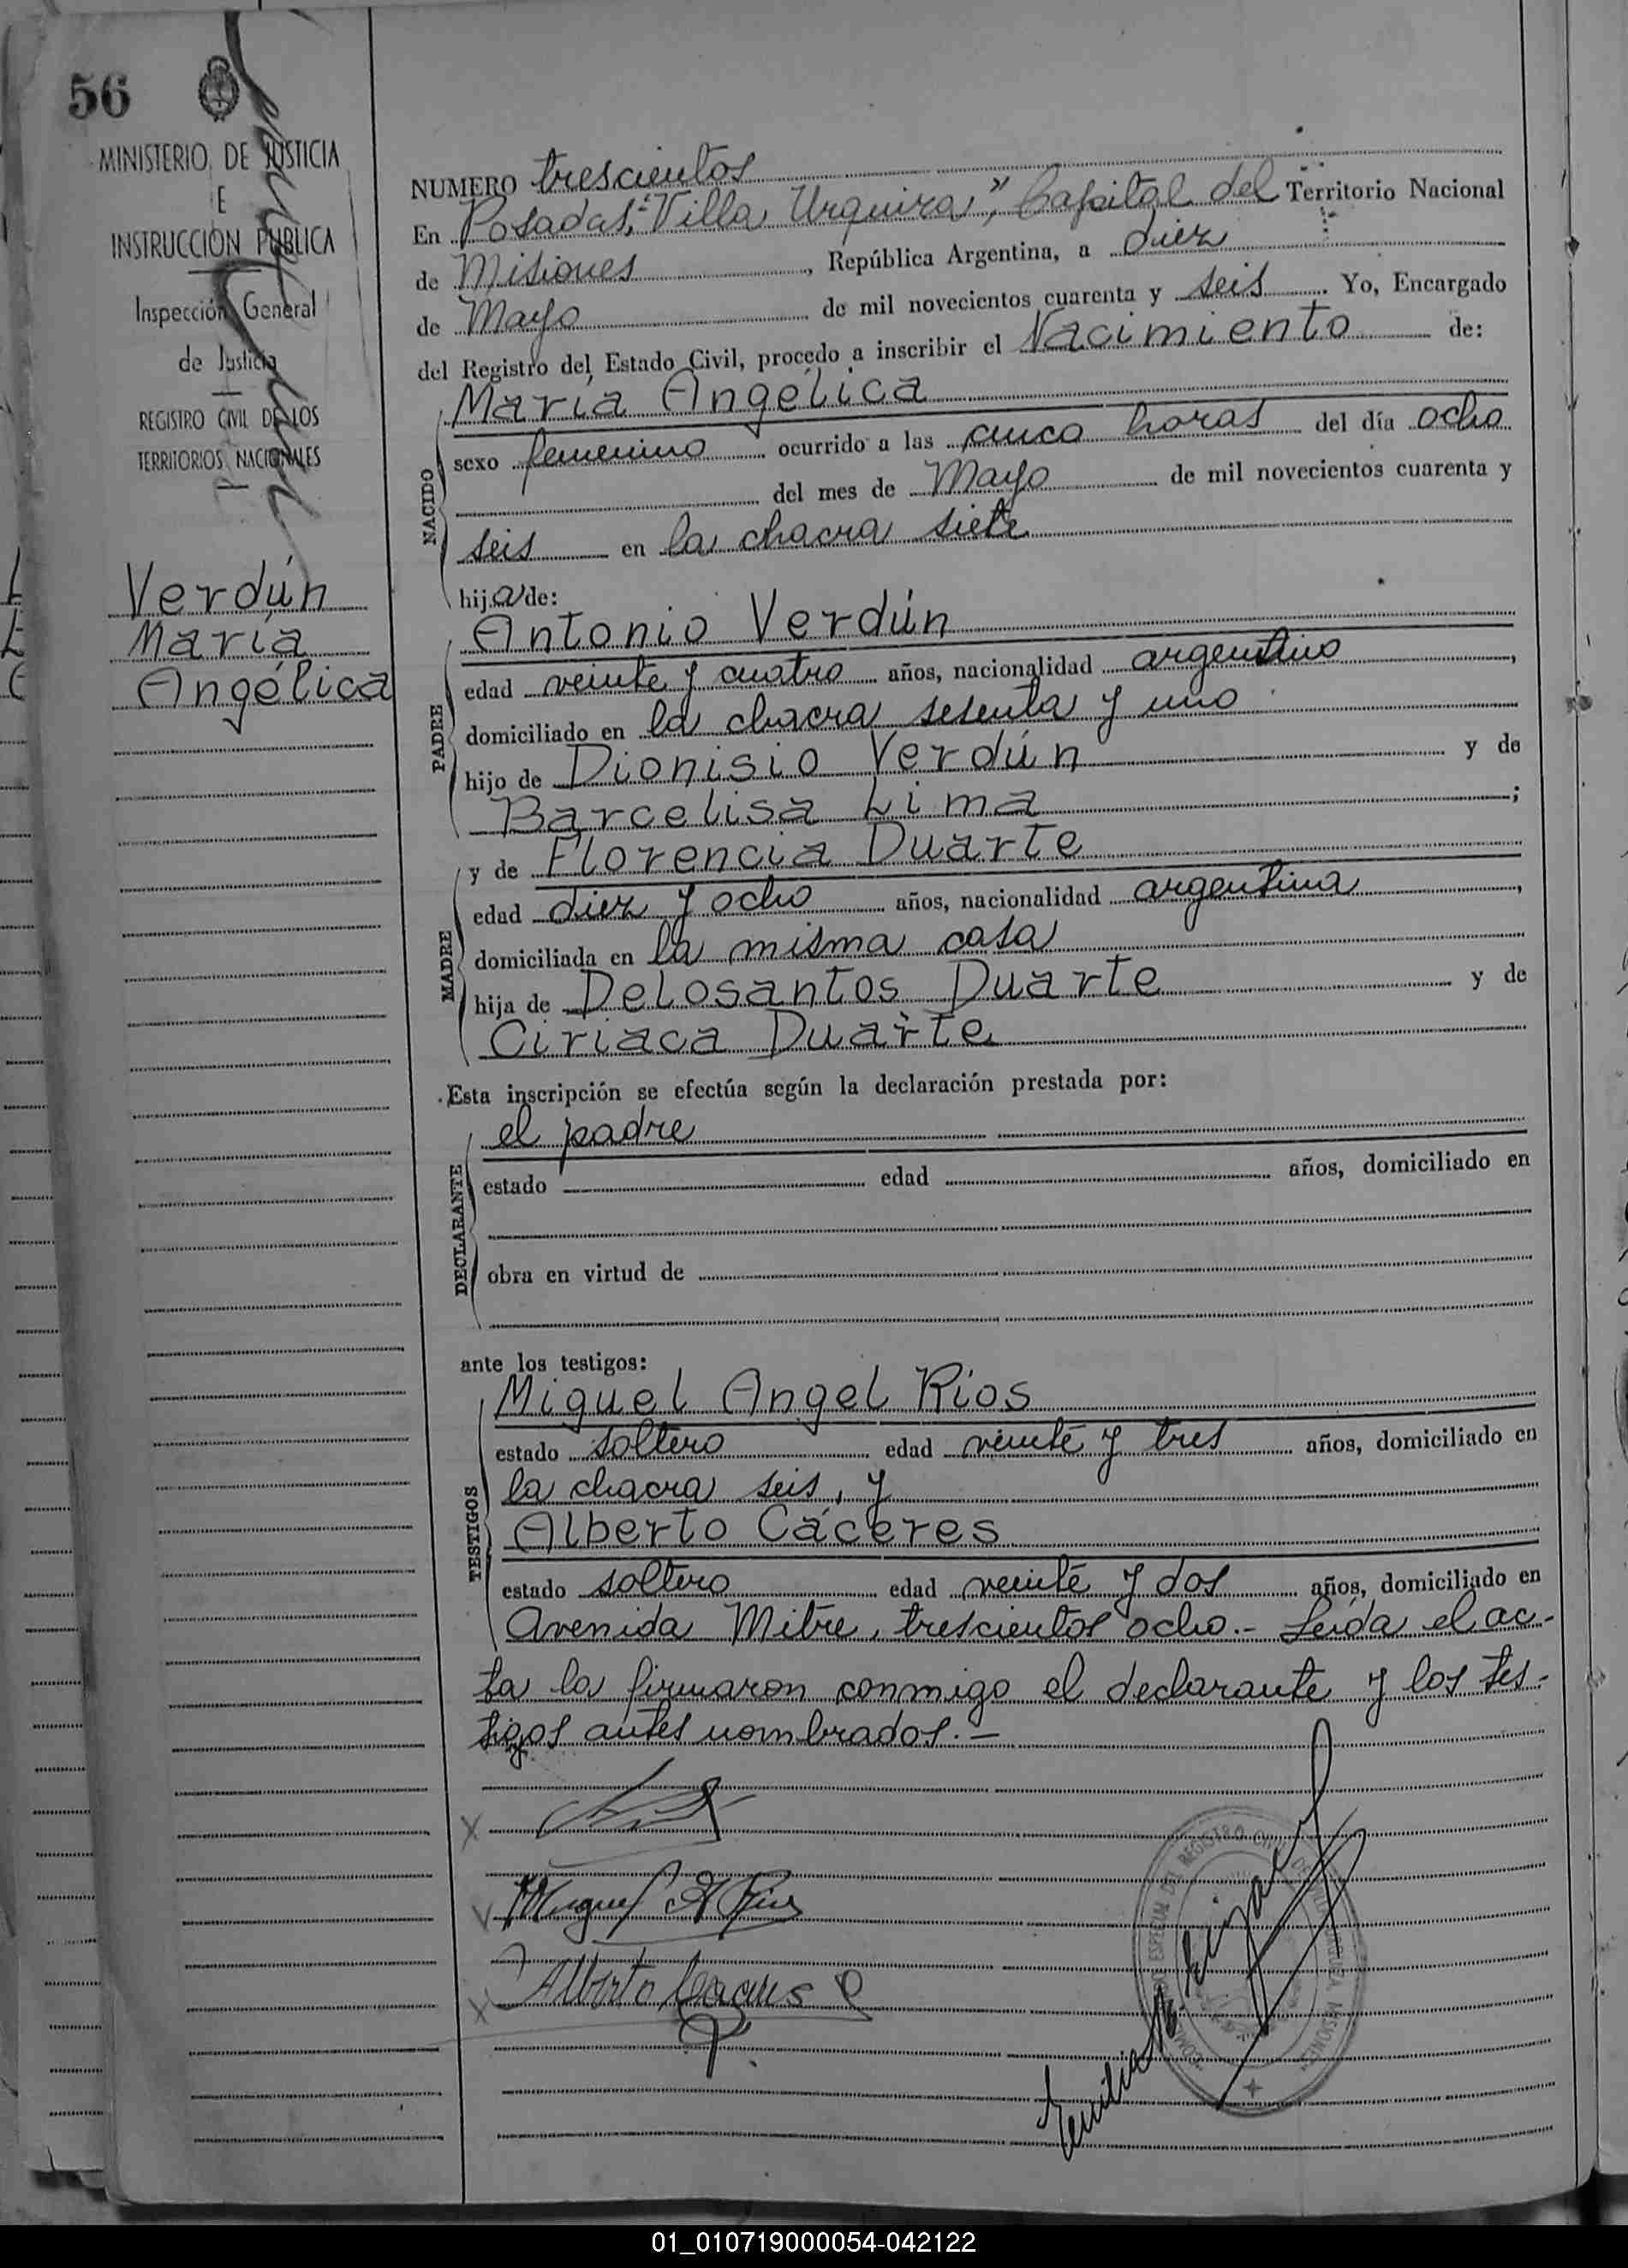 56
MINISTERIO DE JUSTICIA
E
INSTRUCCIÓN PÚBLICA
Inspección General
de Justicia
REGISTRO CIVIL DE LOS
TERRITORIOS NACIONALES
Verdún
María
Angélica
NUMERO trescientos
En Posadas, "Villa Urquiza", Capital del Territorio Nacional
de Misiones, República Argentina, a diez
de Mayo de mil novecientos cuarenta y seis. Yo, Encargado
del Registro del Estado Civil, procedo a inscribir el Nacimiento de:
María Angélica
NACIDO
sexo femenino ocurrido a las cinco horas del día ocho
del mes de Mayo de mil novecientos cuarenta y
seis en la chacra siete
hija de:
Antonio Verdún
PADRE
edad veinte y cuatro años, nacionalidad argentino,
domiciliado en la chacra sesenta y uno
hijo de Dionisio Verdún y de
Barcelisa Lima;
y de Florencia Duarte
MADRE
edad diez y ocho años, nacionalidad argentina,
domiciliada en la misma casa
hija de Delosantos Duarte y de
Ciriaca Duarte
Esta inscripción se efectúa según la declaración prestada por:
el padre
DECLARANTE
estado edad años, domiciliado en
obra en virtud de
ante los testigos:
Miguel Angel Ríos
TESTIGOS
estado soltero edad veinte y tres años, domiciliado en
la chacra seis, y
Alberto Cáceres
estado soltero edad veinte y dos años, domiciliado en
Avenida Mitre, trescientos ocho.- Leída el ac-
ta la firmaron conmigo el declarante y los tes-
tigos antes nombrados.-
Miguel A Ríos
Alberto Caceres
01_010719000054-042122